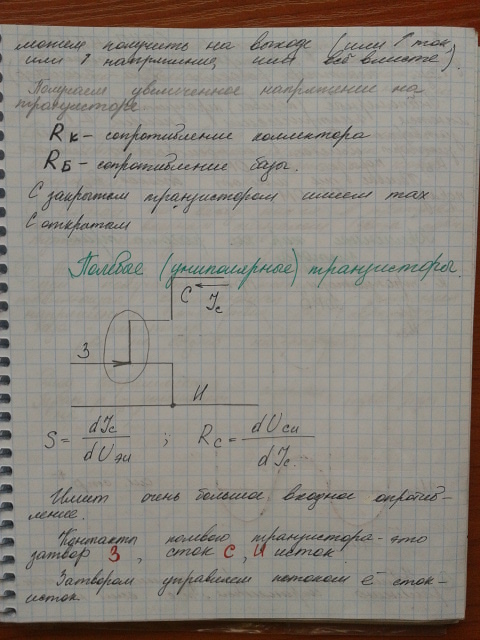 можем получить на выходе (или ↑ ток,
или ↑ напряжение, или всё вместе).
Получаем увеличенное напряжение на
транзисторе.
Rк – сопротивление коллектора
RБ – сопротивление базы.
С закрытом транзистором имеем max
С открытом
Полевые (униполярные) транзисторы.
С Iс
З
И
S = dIс / dUзи ; Rс = dUси / dIс
Имеит очень большое входное опротив-
ление.
Контакты полевого транзистора - это
затвор З, сток С, И исток
Затвором управляем потоком ē сток-
исток.